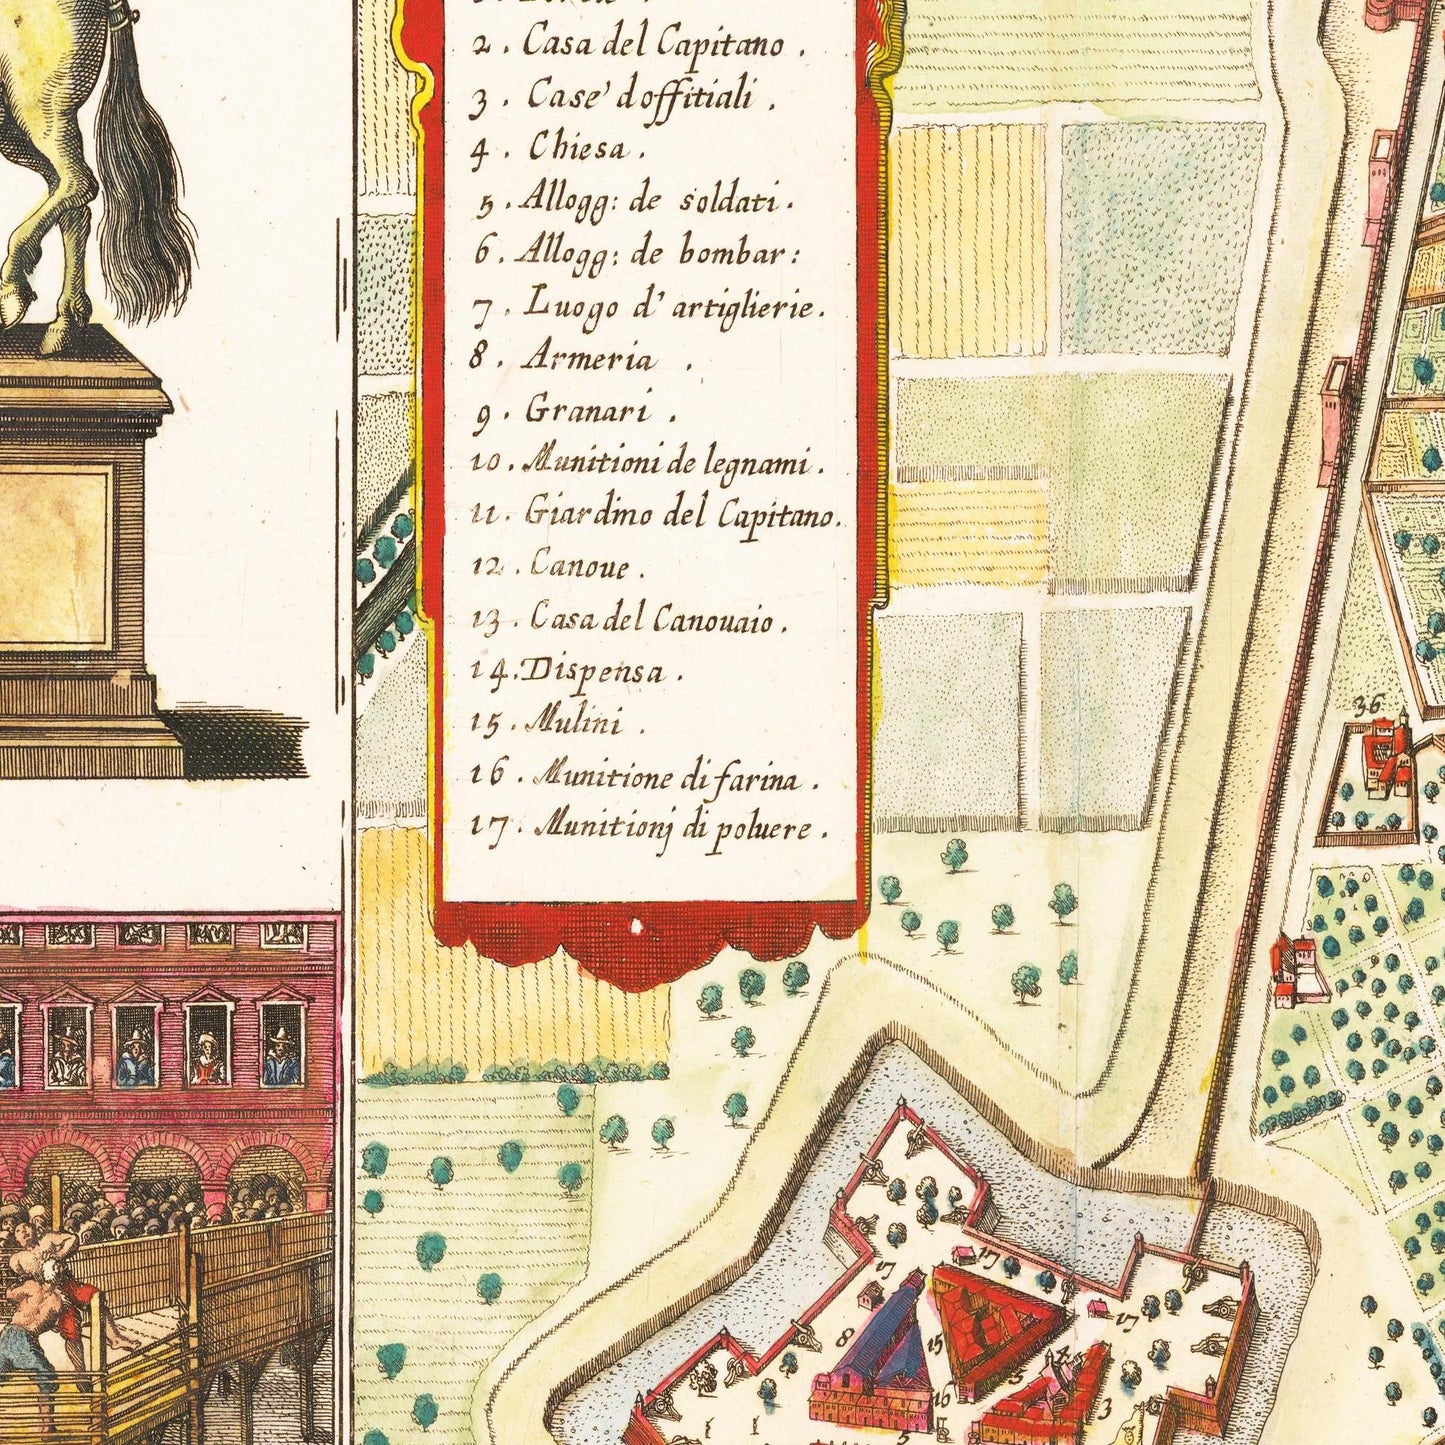 2. Casa del Capitano.
3. Case' d'offitiali.
4. Chiesa.
5. Allogg: de soldati.
6. Allogg: de bombar:
7. Luogo d'artiglierie.
8. Armeria.
9. Granari.
10. Munitioni de legnami.
11. Giardino del Capitano.
12. Canoue.
13. Casa del Canouaio.
14. Dispensa.
15. Mulini.
16. Munitione di farina.
17. Munitionj di poluere.
36
17
17
17
8
15
4
3
16
3
5